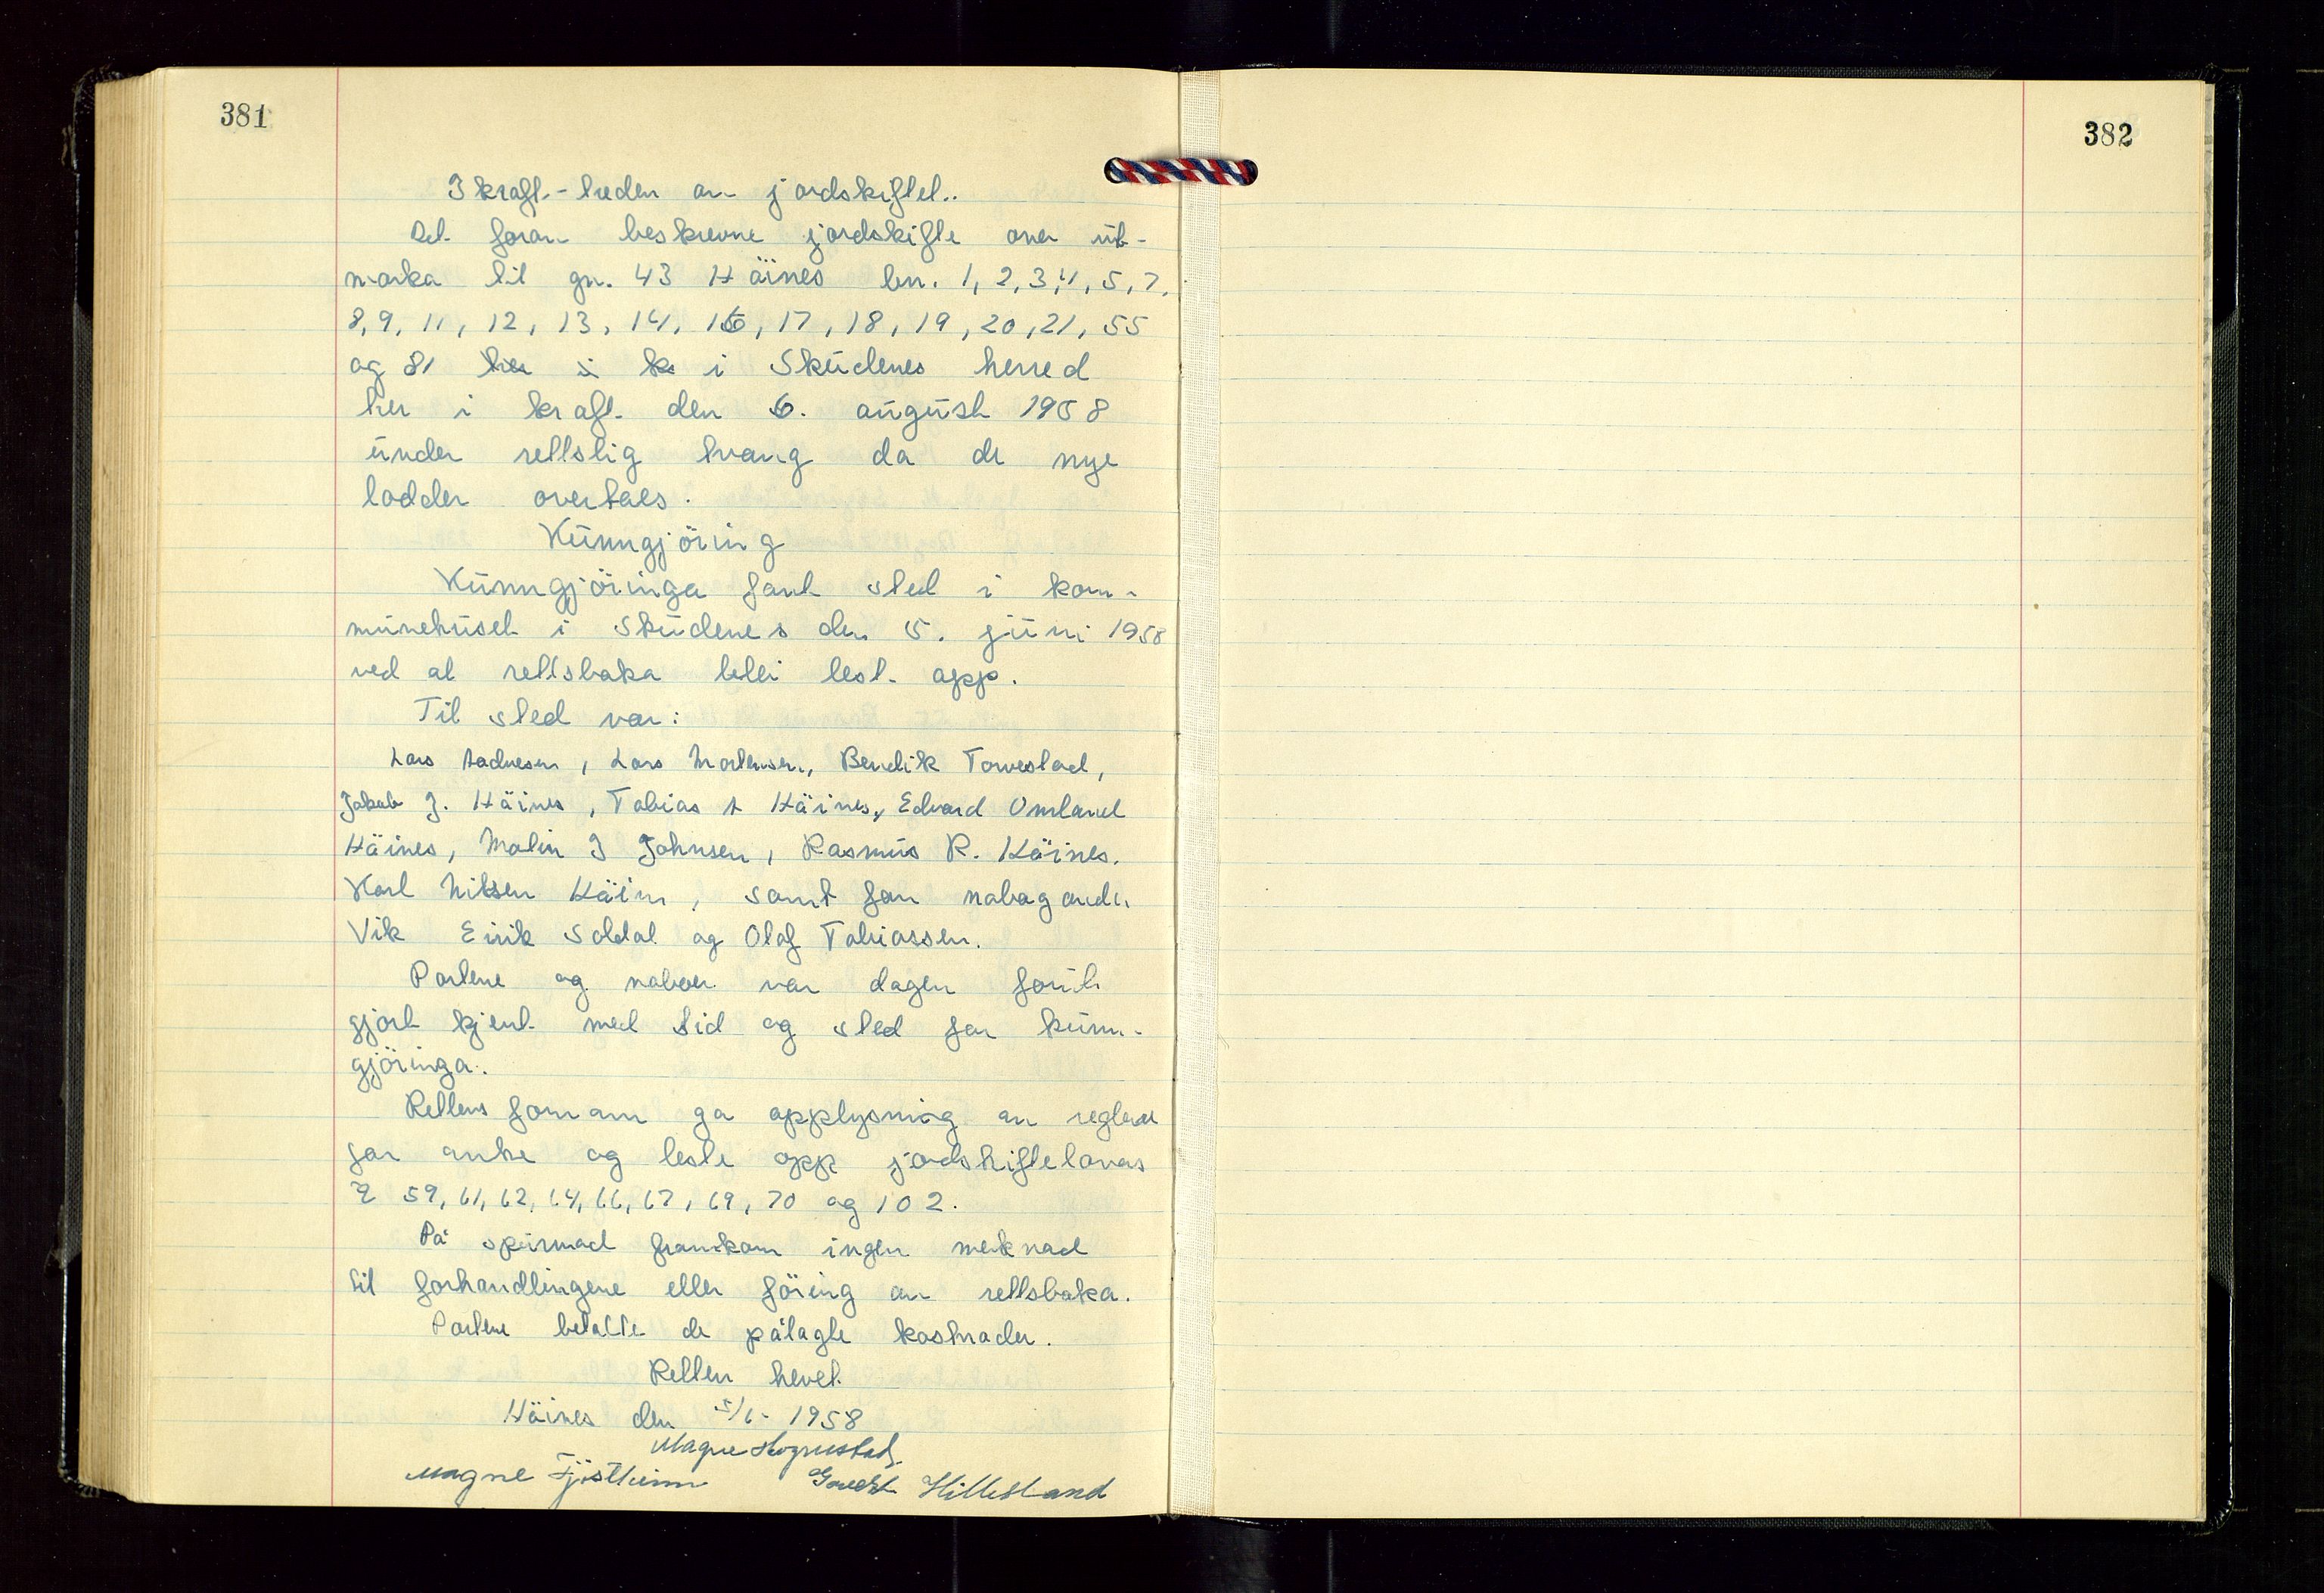 381
382
I kraft-treden av jordskiftet.
Det foran beskrevne jordskifte over ut-
marka til gn. 43 Håines bn. 1, 2, 3, 4, 5, 7,
8, 9, 11, 12, 13, 14, 16, 17, 18, 19, 20, 21, 55
og 81 i Skudenes herred
trer i kraft den 6. august 1958
under rettslig tvang da de nye
lodder overtaes.
Kunngjöring
Kunngjöringa fant sted i kom-
munehuset i Skudenes den 5. juni 1958
ved at rettsboka blei lest opp.
Til sted var:
Lars Aadnesen, Lars Mortensen, Bendik Torvestad,
Jakob J. Håines, Tobias A Håines, Edvard Omland
Håines, Malin J Johnsen, Rasmus R. Håines,
Karl Nilsen Håines, samt for nabogarden
Vik Eirik Soldal og Olaf Tobiassen.
Partene og naboer var dagen forut
gjort kjent med tid og sted for kunn-
gjöringa.
Rettens formann ga opplysning om reglene
for anke og leste opp jordskiftelovas
§ 59, 61, 62, 64, 66, 67, 69, 70 og 102.
På spörsmål framkom ingen merknad
til forhandlingene eller föring av rettsboka.
Partene betalte de pålagte kostnader.
Retten hevet
Håines den 5/6- 1958
Magne Hognestad
Magne Fjöstheim Hillesland